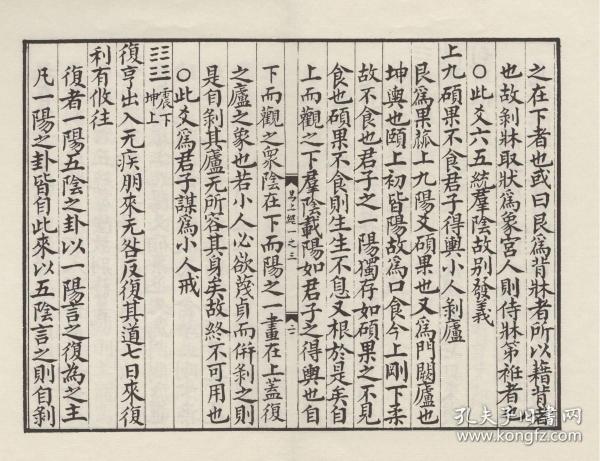 之在下者也或曰艮爲背牀者所以藉背者
也故剥牀取狀爲象宮人則侍牀第袵者也
○此爻六五統羣陰故别發義
上九碩果不食君子得輿小人剥廬
艮爲果蓏上九陽爻碩果也又爲門闕廬也
坤輿也頤上初皆陽故爲口食今上剛下柔
故不食也君子之一陽獨存如碩果之不見
食也碩果不食則生生不息又根於是矣自
上而觀之下羣陰載陽如君子之得輿也自
易上經 之三 二
下而觀之衆陰在下而陽之一畫在上蓋復
之廬之象也若小人必欲蔑貞而併剥之則
是自剥其廬无所容其身矣故終不可用也
○此爻爲君子謀爲小人戒
震下坤上
復亨出入无疾朋來无咎反復其道七日來復
利有攸往
復者一陽五陰之卦以一陽言之復為之主
凡一陽之卦皆自此來以五陰言之則自剥
孔夫子旧书网
www.kongfz.com